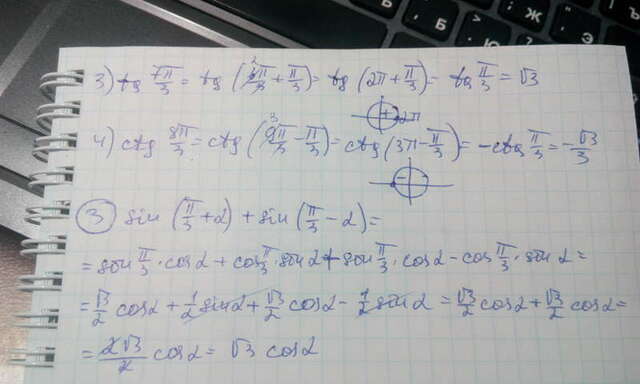 3) tg 7π/3 = tg (6π/3 + π/3) = tg (2π + π/3) = tg π/3 = √3
2π
4) ctg 8π/3 = ctg (9π/3 - π/3) = ctg (3π - π/3) = -ctg π/3 = -√3/3
③ sin (π/3 + α) + sin (π/3 - α) =
= sin π/3 · cos α + cos π/3 · sin α + sin π/3 · cos α - cos π/3 · sin α =
= √3/2 cos α + 1/2 sin α + √3/2 cos α - 1/2 sin α = √3/2 cos α + √3/2 cos α =
= 2√3/2 cos α = √3 cos α